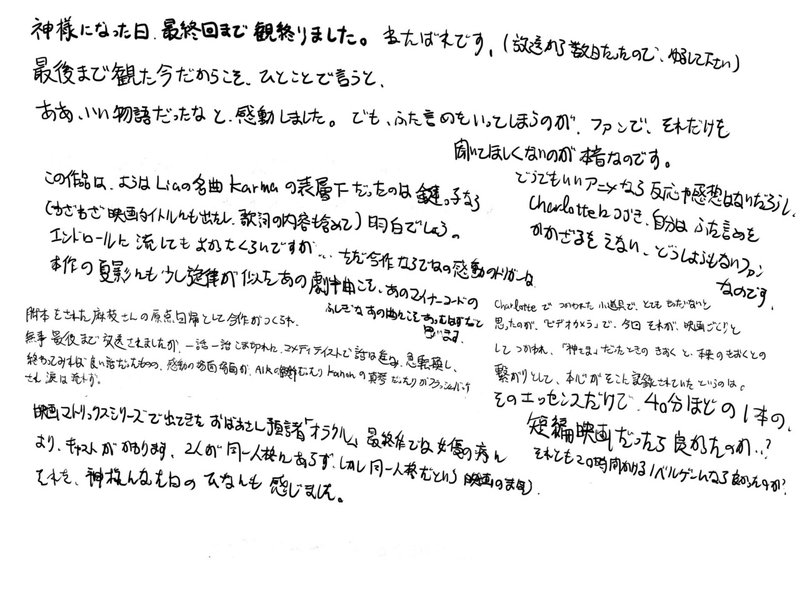 神様になった日、最終回まで観終りました。ネタばれです。(放送から数日たったので、ゆるして下さい)
最後まで観た今だからこそ、ひとことで言うと、
ああ、いい物語だったなと、感動しました。でも、ふた言めをいってしまうのが、ファンで、それだけを
聞いてほしくないのが本音なのです。
この作品は、ようはLiaの名曲karmaの表層下だったのは鍵っ子なら
(わざわざ映画のタイトルにも出たし、歌詞の内容も含めて)明白でしょう。
エンドロールに流してもよかったくらいですが… ただ今作ならではの感動のトリガーは
本作の夏影にも少し旋律が似たあの劇中曲こそ、あのマイナーコードの
ふしぎなあの曲にこそあったはずだと
思います。
どうでもいいアニメなら反応や感想はないだろうし、
Charlotteにつづき、自分はふた言めを
かかざるをえない、どうしようもないファン
なのです。
脚本をされた麻枝さんの原点回帰として今作がつくられ、
無事最後まで放送されましたが、一話一話しめ切られた、コメディテイストで話は進み、急転換し、
終わってみれば良い話だったものの、感動の場面場面が、AIRの翻案だったりKanonの真琴だったりがフラッシュバック
され涙は流れず。
Charlotteでつかわれた小道具で、とてももったいないと
思ったのが、「ビデオカメラ」で、今回それが、映画づくりと
してつかわれ、「神さま」だったときのきおくと、本来のきおくとの
繋がりとして、本心がそこに記録されていたというのは。
そのエッセンスだけで、40分ほどの1本の、
短編映画だったら良かったのか…?
それとも20時間かけるノベルゲームなら良かったのか?
映画マトリックスシリーズで出てきたおばあさん預言者「オラクル」、最終作では女優の病に
より、キャストがかわります、2人が同一人格にあらず、しかし同一人格だという(映画のまま)
それを、神様になった日のひなにも感じました。